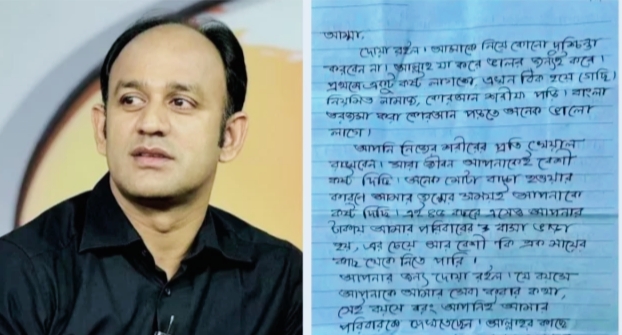 আম্মা,
দোয়া রইল। আমাকে নিয়ে কোনো দুশ্চিন্তা
করবেন না। আল্লাহ যা করে ভালোর জন্যই করে।
প্রথমে একটু কষ্ট লাগতো এখন ঠিক হয়ে গেছি।
নিয়মিত নামাজ, কোরআন শরীফ পড়ি। বাংলা
তরজমা করা কোরআন পড়তে অনেক ভালো
লাগে।
আপনি নিজের শরীরের প্রতি খেয়াল
রাখবেন। সারা জীবন আপনাকেই বেশী
কষ্ট দিছি। অনেক মোটা বাচ্চা হওয়ার
কারণে আমার জন্মের সময়ই আপনাকে
কষ্ট দিছি। এই বয়সে এসেও আপনার
টাকায় আমার পরিবারের বাসা ভাড়া
হয়, এর চেয়ে আর বেশী কি এক মায়ের
কাছ থেকে নিতে পারি।
আপনার জন্য দোয়া রইল। যে বয়সে
আপনাকে আমার দেখা শুনার কথা,
সেই বয়সে বরং আপনিই আমার
পরিবারকে দেখতেছেন। আল্লাহর কাছে